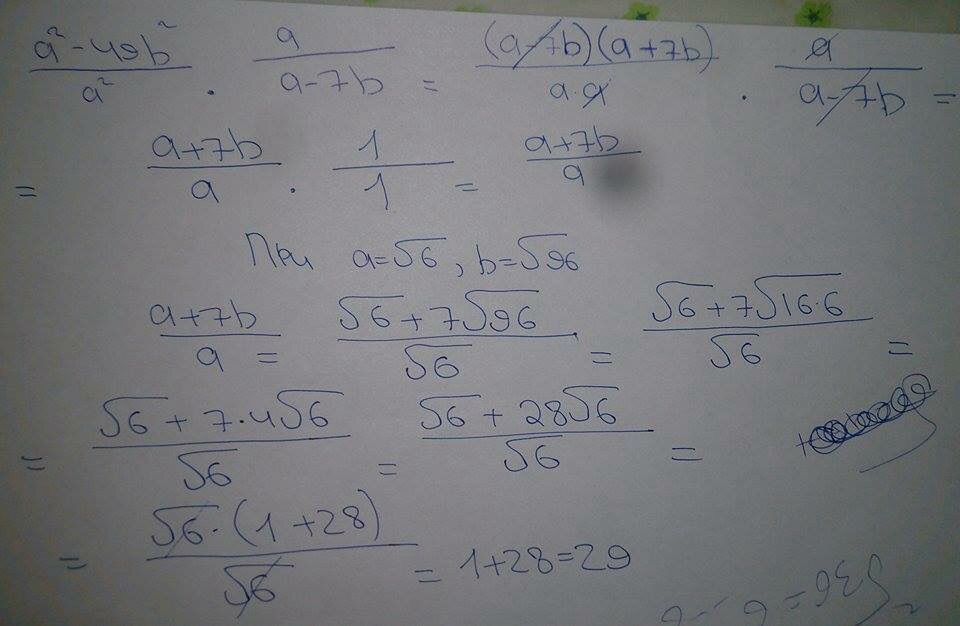 (a² - 49b²)/a² · a/(a-7b) = ((a-7b)(a+7b))/(a·a) · a/(a-7b) =
= (a+7b)/a · 1/1 = (a+7b)/a
При a=√6, b=√96
(a+7b)/a = (√6+7√96)/√6 = (√6+7√(16·6))/√6 =
= (√6+7·4√6)/√6 = (√6+28√6)/√6 =
= (√6·(1+28))/√6 = 1+28=29